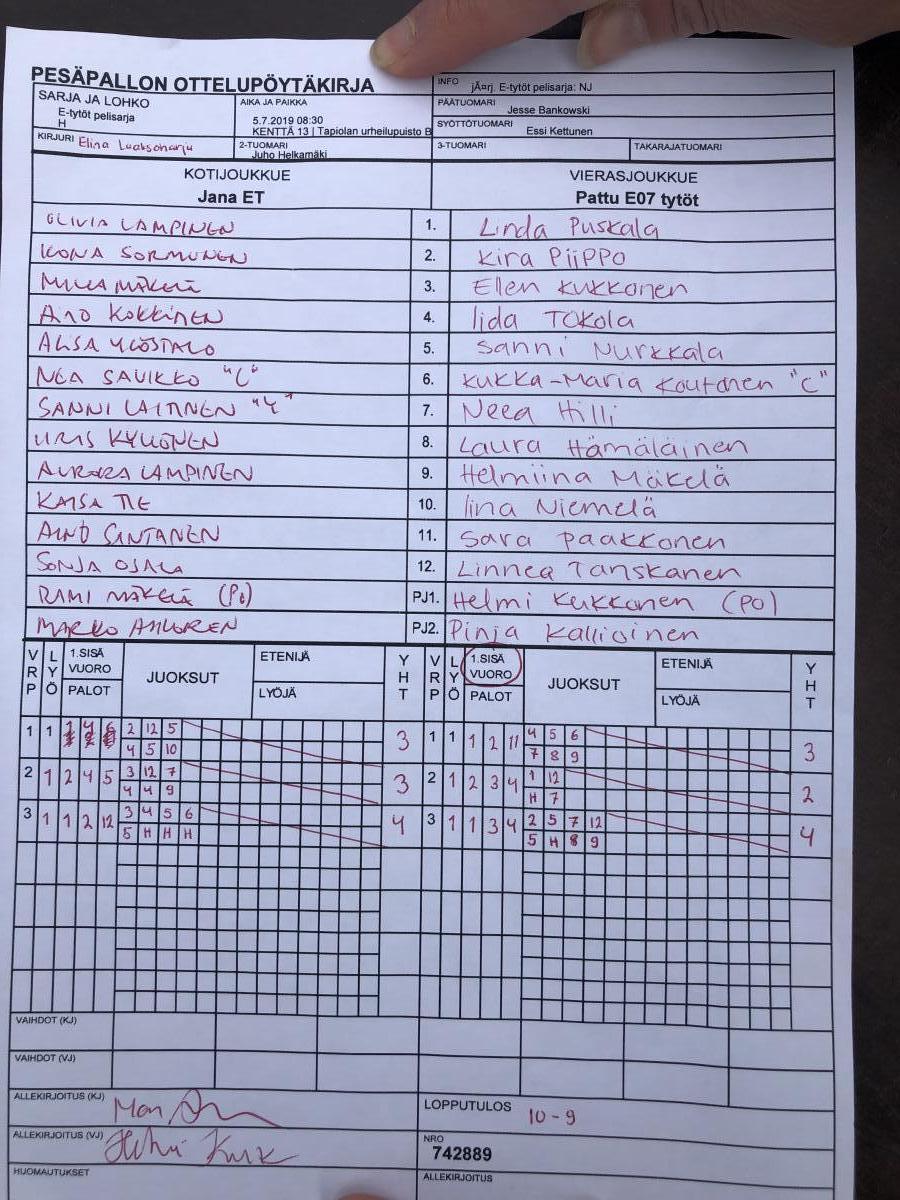 PESÄPALLON OTTELUPÖYTÄKIRJA
INFO jÃ¤rj. E-tytöt pelisarja: NJ
SARJA JA LOHKO
E-tytöt pelisarja
H
AIKA JA PAIKKA
5.7.2019 08:30
KENTTÄ 13 | Tapiolan urheilupuisto B
PÄÄTUOMARI Jesse Bankowski
SYÖTTÖTUOMARI Essi Kettunen
KIRJURI Elina Luatsoharju
2-TUOMARI Juho Helkamäki
3-TUOMARI
TAKARAJATUOMARI
KOTIJOUKKUE
Jana ET
VIERASJOUKKUE
Pattu E07 tytöt
OLIVIA LAMPINEN 1. Linda Puskala
SORMUNEN 2. Kira PiiPPO
MÄKELÄ 3. Ellen KUKKONEN
KOKKINEN 4. Iida TOKOLA
5. Sanni NURKKALA
NEA SAVIKKO "C" 6. KUKKA-MARIA Koutonen "C"
SANNI LAITINEN 7. Neea Hilli
KYLLÖNEN 8. Laura Hämäläinen
AURORA LAMPINEN 9. Helmiina Mäkelä
KAISA TIE 10. Iina Niemelä
SANTANEN 11. Sara Paakkonen
SONJA OJALA 12. Linnea Tanskanen
RAMI MÄKELÄ (PO) PJ1. Helmi Kukkonen (PO)
MARKO PJ2. Pinja Kallioinen
VRP LYÖ 1.SISÄ VUORO PALOT JUOKSUT ETENIJÄ LYÖJÄ YHT VRP LYÖ 1.SISÄ VUORO PALOT JUOKSUT ETENIJÄ LYÖJÄ YHT
1 1 2 12 5 3 1 1 1 2 11 4 5 6 3
4 5 10 7 8 9
2 1 2 4 5 3 12 7 3 2 1 2 3 4 1 12 2
4 4 9 H 7
3 1 1 2 12 3 4 5 6 4 3 1 1 3 4 2 5 7 12 4
5 H H H 5 H 8 9
VAIHDOT (KJ)
VAIHDOT (VJ)
ALLEKIRJOITUS (KJ)
LOPPUTULOS 10-9
ALLEKIRJOITUS (VJ)
NRO
742889
HUOMAUTUKSET
ALLEKIRJOITUS